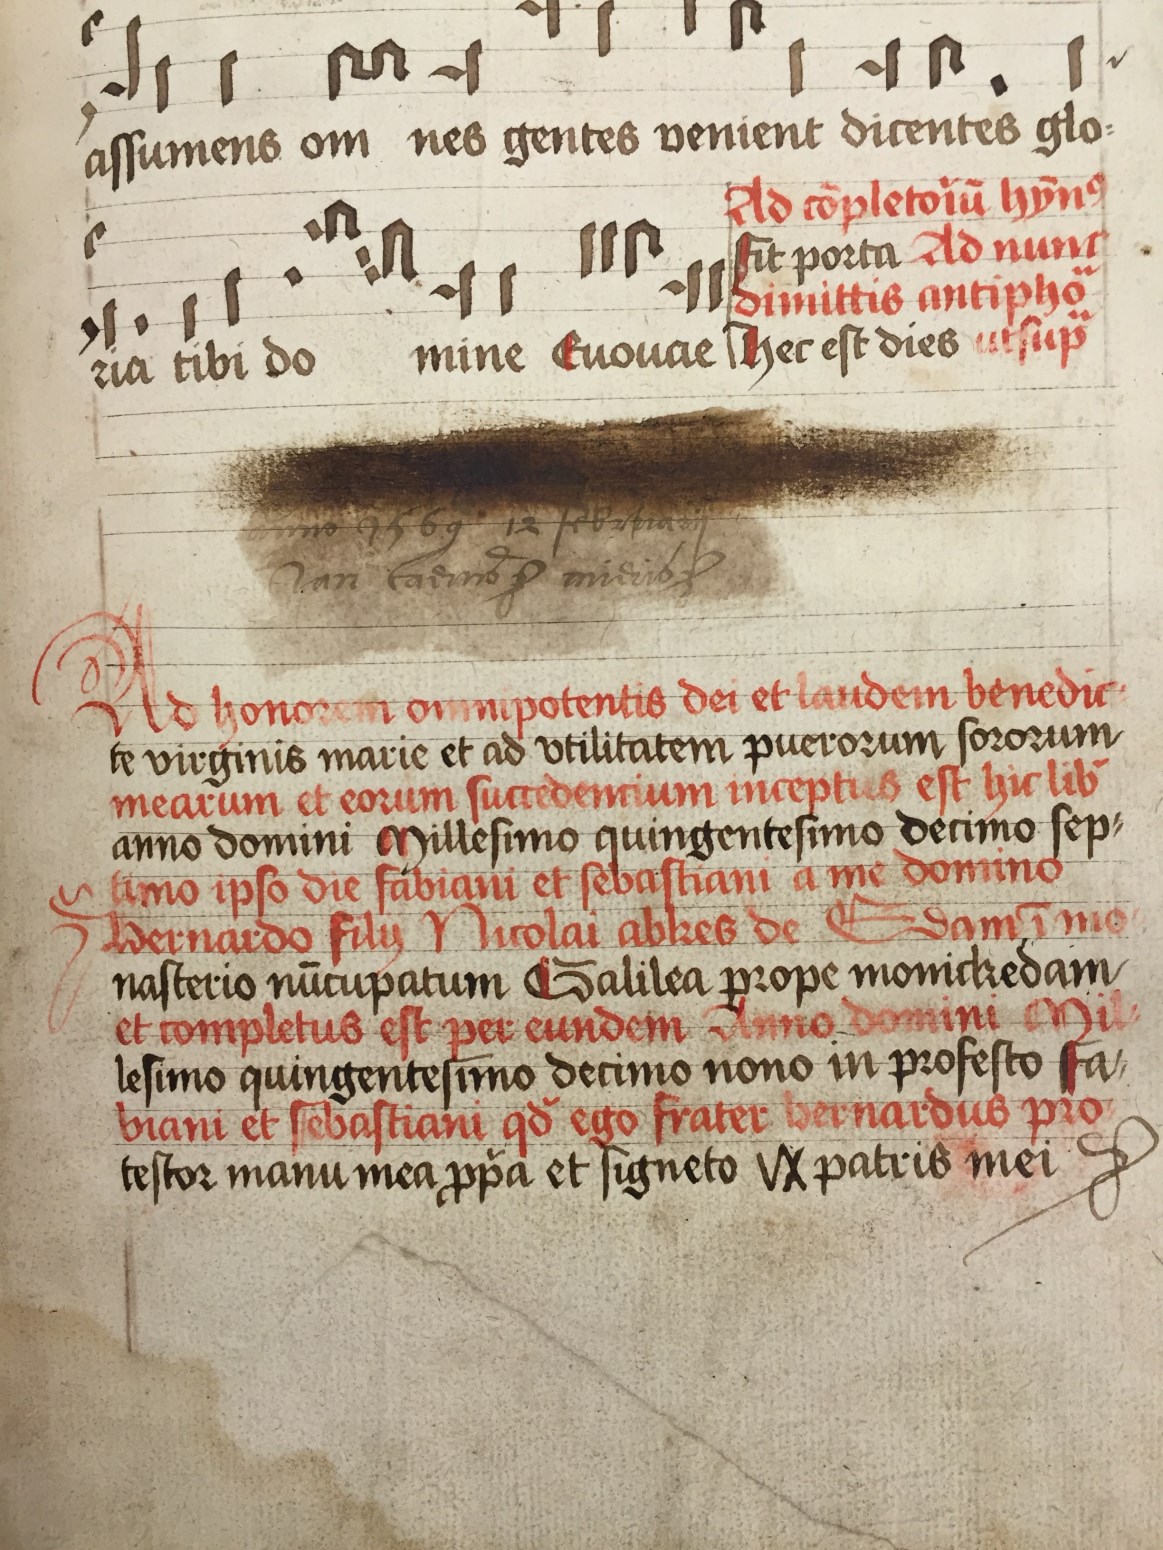 assumens om nes gentes venient dicentes glo:
Ad cōpletoriū hȳn⁹
fit porta Ad nunc
dimittis antiphoᷓ
ria tibi do mine Euouae Hec est dies utsupᷓ
Anno 1569 12 februarij
Jan
Ad honorem omnipotentis dei et laudem benedic:
te virginis marie et ad vtilitatem puerorum sororum
mearum et eorum succedencium inceptus est hic lib̄
anno domini Millesimo quingentesimo decimo sep:
timo ipso die fabiani et sebastiani a me domino
Bernardo filij Nicolai abkes de Edam ī mo
nasterio nūcupatum Galilea prope monickedam
et completus est per eundem Anno domini Mil:
lesimo quingentesīmo decimo nono in profesto Fa:
biani et sebastiani qd̄ ego frater bernardus pro
testor manu mea ꝓpᷓa et signeto patris mei